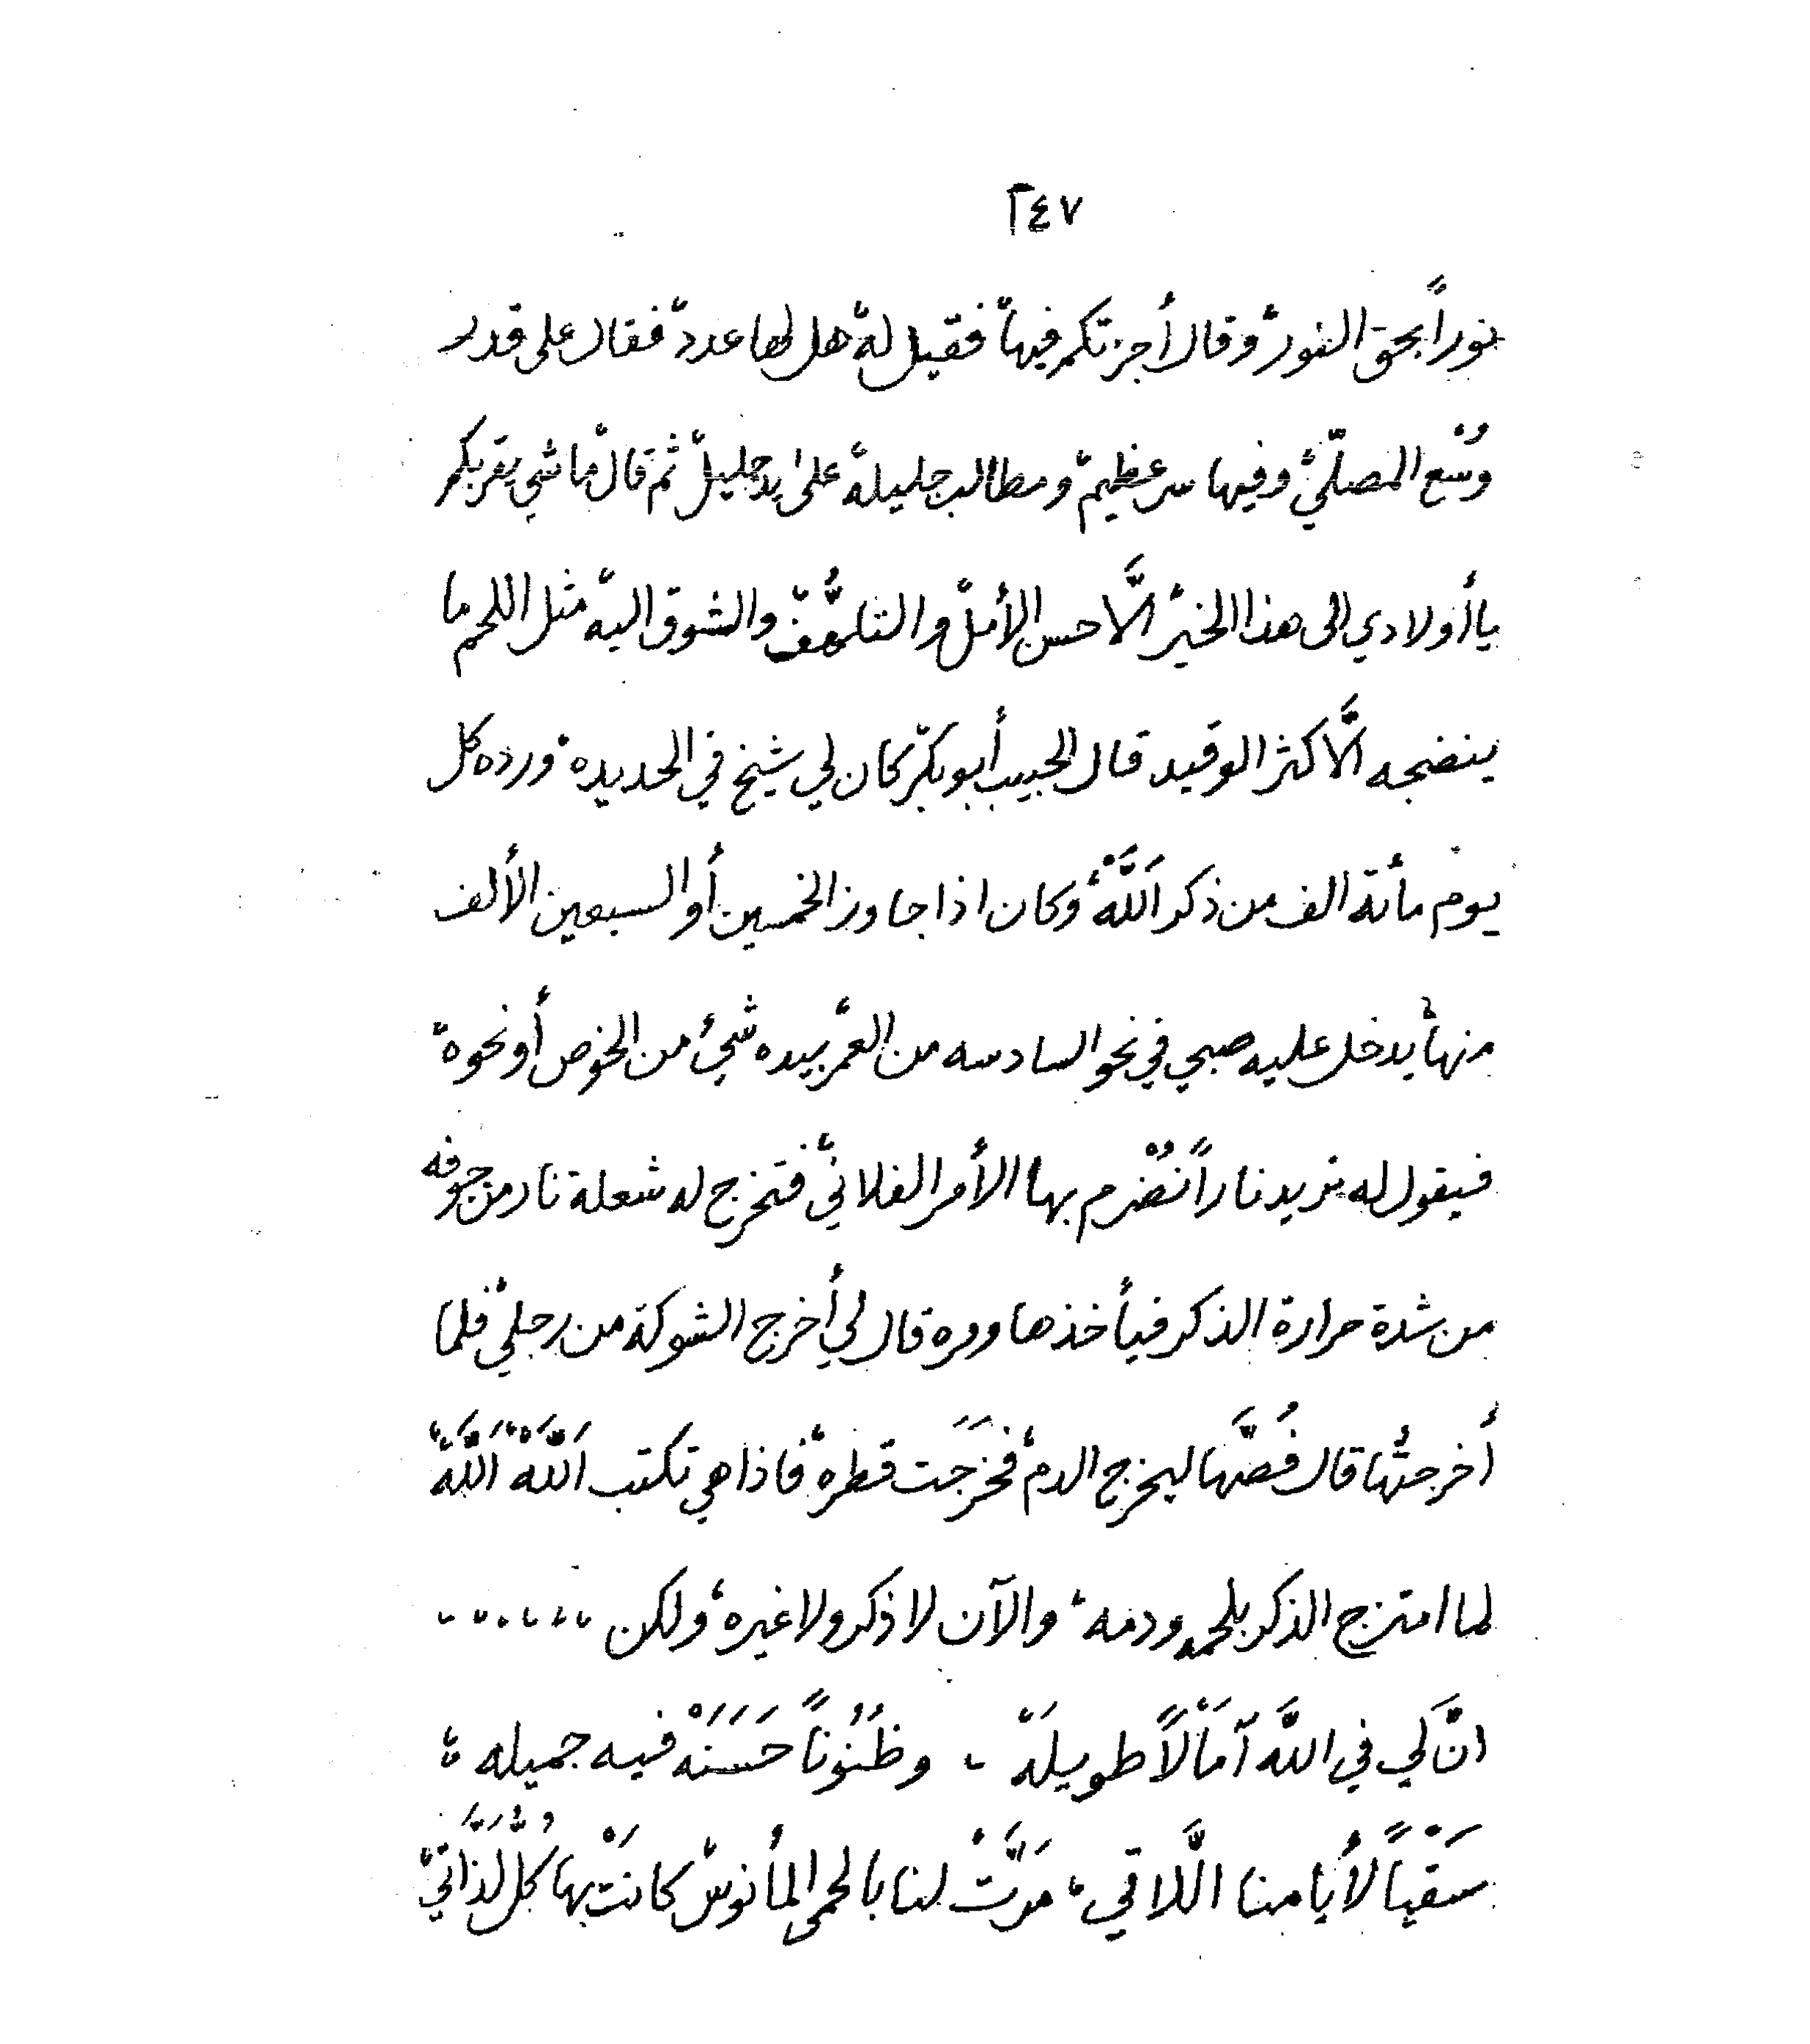 ٢٤٧
نوراً بحق النور، وقال أجزتكم فيها، فقيل له، هل لها عدد، فقال على قدر
وُسْع المصلّي، وفيها سر عظيم، ومطالب جليلة، على يد جليل، ثم قال، ما شي يقربكم
يا أولادي الى هذا الخير، الَّا حسن الأمل، والتلهُّف، والشوق اليه، مثل اللحم ما
ينضجه الَّا كثر الوقيد قال الحبيب أبوبكر، كان لي شيخ في الحديده، ورده كل
يوم مائة الف من ذكر اَللَّهْ، وكان اذا جاوز الخمسين أو السبعين الألف
منها، يدخل عليه صبي في نحو السادسه من العمر، بيده شيء من الخوص أو نحوه،
فيقول له نريد ناراً نُضْرم بها الأمر الفلاني، فتخرج له شعلة نار من جوفه
من شدة حرارة الذكر فيأخذها ومره قال لي أخرج الشوكة من رجلي، فلما
أخرجتُها قال فُصَّها ليخرج الدم، فخرَجَت قطره، فاذا هي تكتب اَللَّهْ، اَللَّهْ،
لما امتزج الذكر بلحمه ودمه، والآن لا ذكر ولا غيره، ولكن ،،،،،،،
انَّ لَي في اللَّه آمَاْلاً طويلَهْ ، وظُنُوناً حَسَنَهْ فيه جميله ؛
سَقْياً لأيامنا الَّلاتي، مَرَّتْ لنا بالحمى المأنوس، كانَتْ بها كُلُّ لَذَّاتي،